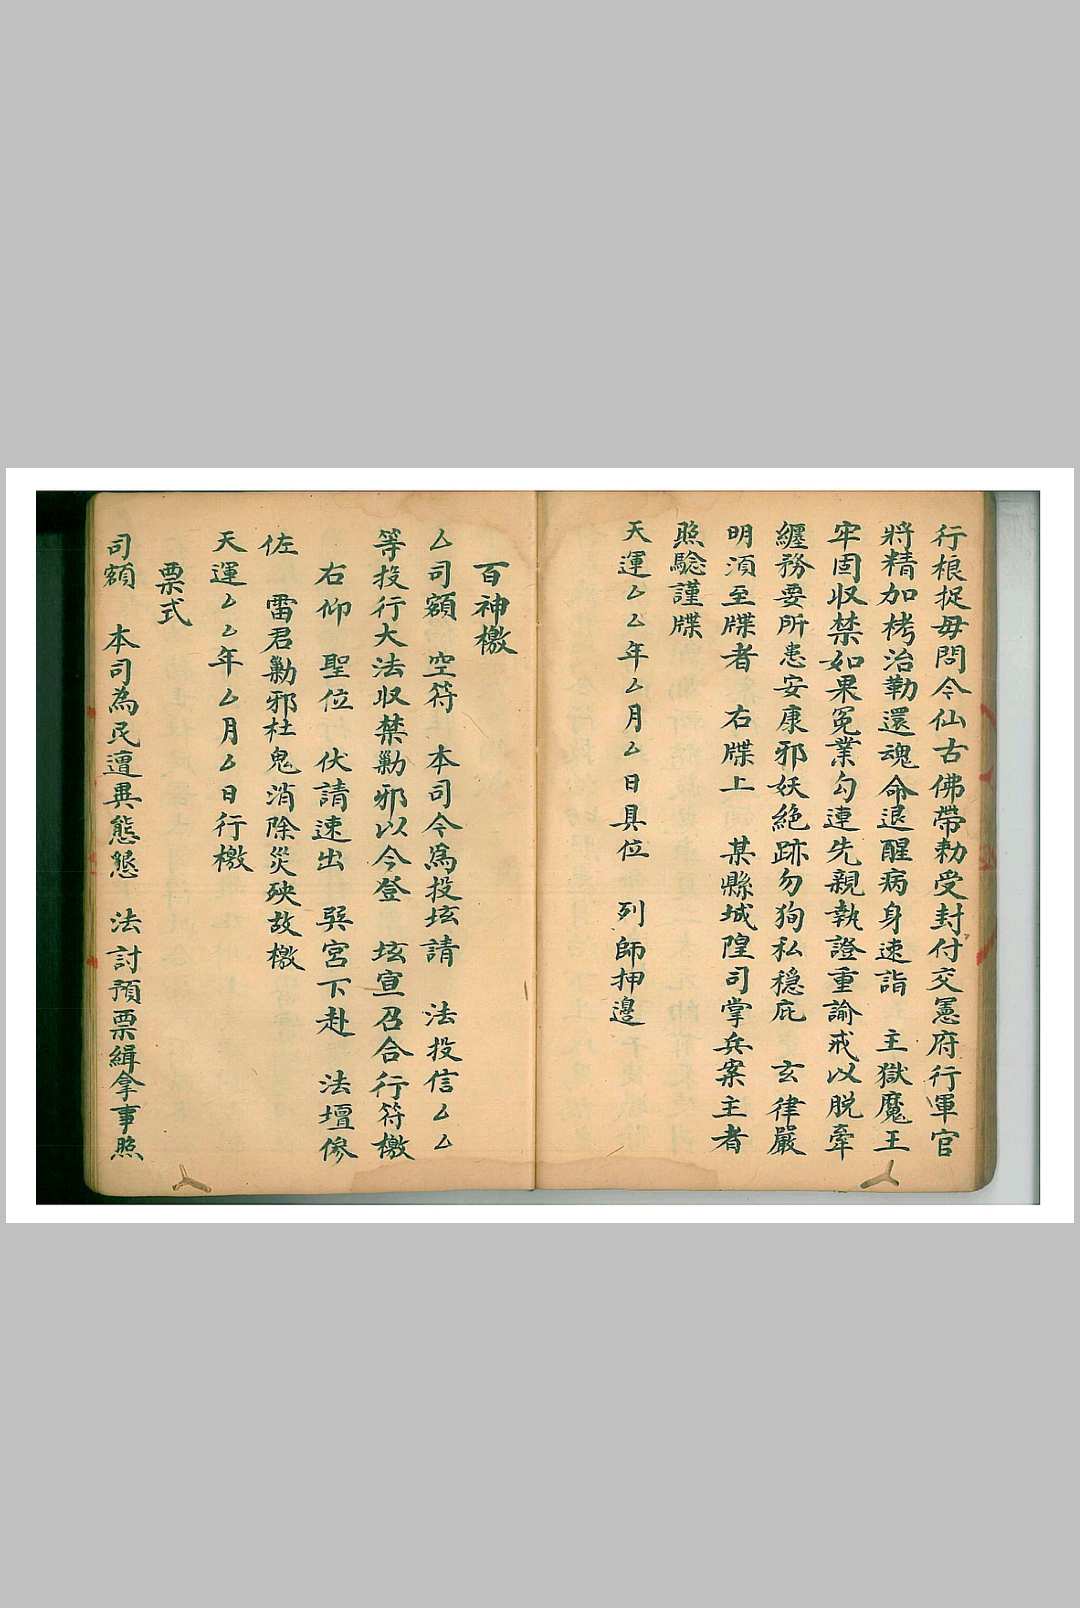 行根捉毋問今仙古佛帶勅受封付交憲府行軍官
將精加栲治勒還魂命退醒病身速詣　主獄魔王
牢固収禁如果冤業勾連先親執證重諭戒以脱牽
纒務要所患安康邪妖絶跡勿狥私穏庇　玄律嚴
明湏至牒者　右牒上　某縣城隍司掌兵案主者
照騐謹牒
天運厶厶年厶月厶日具位　列師押邊
百神檄
厶司額　空符　本司今為投垓請　法投信厶厶
等投行大法収禁勦邪以今登　垓宣召合行符檄
右仰　聖位　伏請速出　巽宮下赴　法壇傪
佐　雷君勦邪杜鬼消除災殃故檄
天運厶厶年厶月厶日行檄
票式
司額　本司為民遭異態懇　法討預票緝拿事照